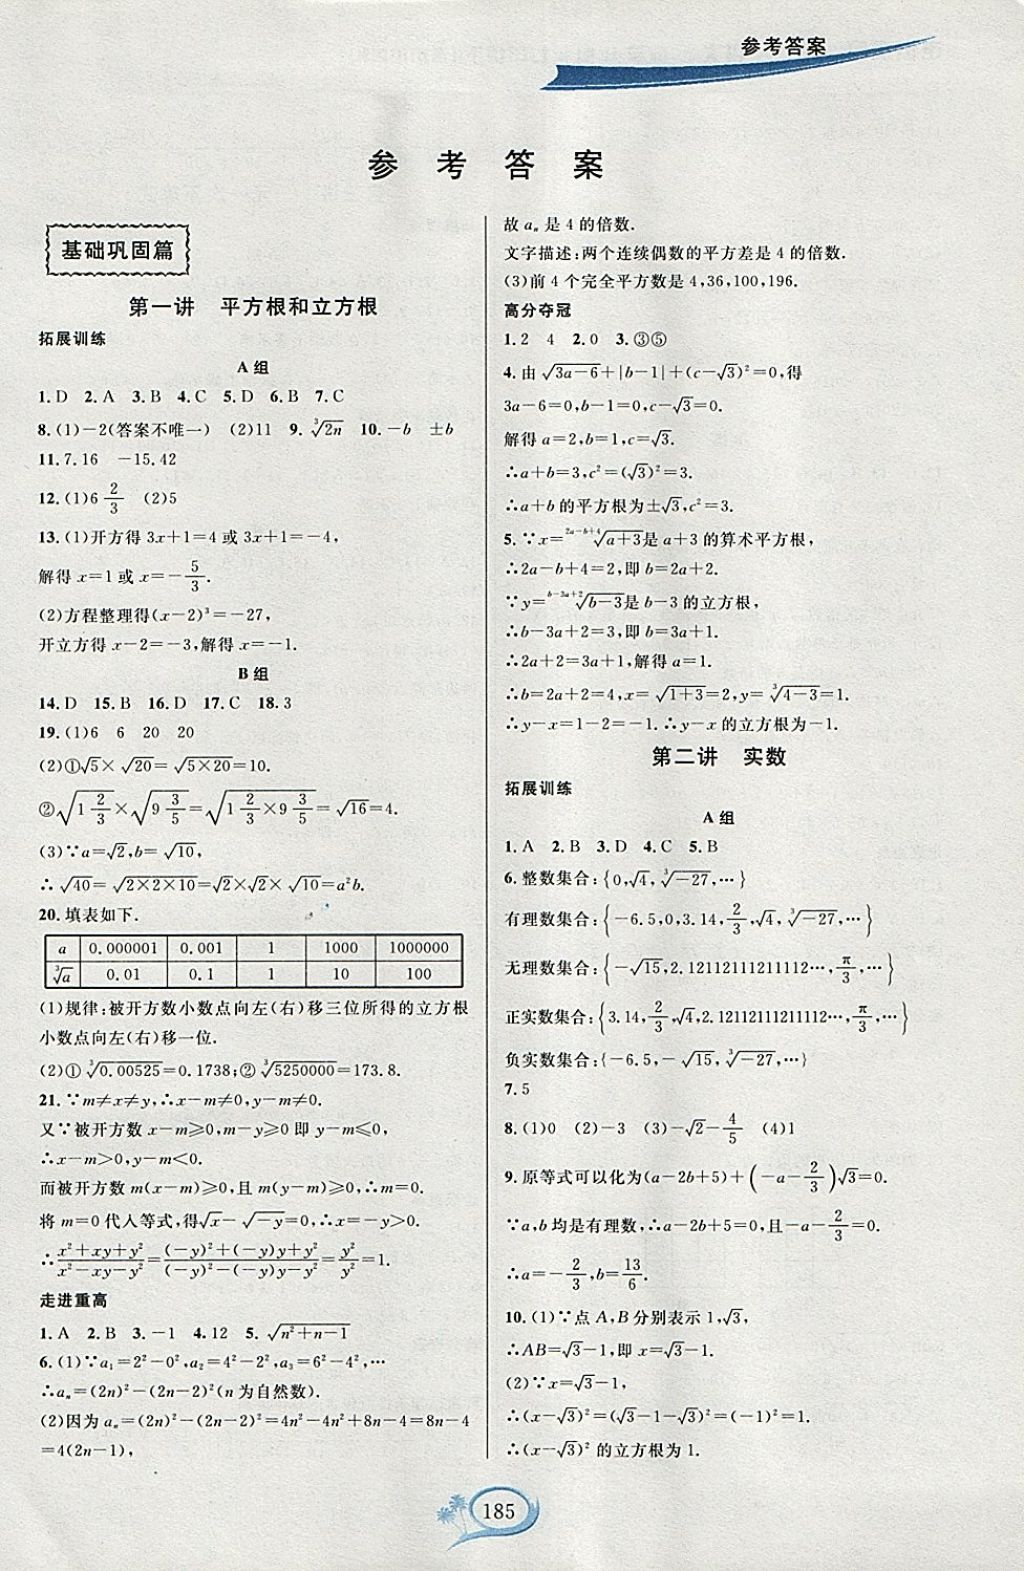 参考答案
参 考 答 案
基础巩固篇
第一讲 平方根和立方根
拓展训练
A 组
1.D 2.A 3.B 4.C 5.D 6.B 7.C
8.(1)-2(答案不唯一) (2)11 9.∛2n 10.-b ±b
11.7.16 -15.42
12.(1)6 2/3 (2)5
13.(1)开方得 3x+1=4 或 3x+1=-4,
解得 x=1 或 x=-5/3.
(2)方程整理得(x-2)³=-27,
开立方得 x-2=-3,解得 x=-1.
B 组
14.D 15.B 16.D 17.C 18.3
19.(1)6 6 20 20
(2)①√5×√20=√(5×20)=10.
②√(1 2/3)×√(9 3/5)=√(1 2/3×9 3/5)=√16=4.
(3)∵a=√2,b=√10,
∴√40=√(2×2×10)=√2×√2×√10=a²b.
20.填表如下.
a 0.000001 0.001 1 1000 1000000
∛a 0.01 0.1 1 10 100
(1)规律:被开方数小数点向左(右)移三位所得的立方根
小数点向左(右)移一位.
(2)①∛0.00525=0.1738;②∛5250000=173.8.
21.∵m≠x≠y,∴x-m≠0,y-m≠0.
又∵被开方数 x-m≥0,m-y≥0 即 y-m≤0,
∴x-m>0,y-m<0.
而被开方数 m(x-m)≥0,且 m(y-m)≥0,∴m=0.
将 m=0 代人等式,得√x-√(-y)=0,∴x=-y>0.
∴(x²+xy+y²)/(x²-xy-y²)=((-y)²+(-y)y+y²)/((-y)²-(-y)y-y²)=y²/y²=1.
走进重高
1.A 2.B 3.-1 4.12 5.√(n²+n-1)
6.(1)∵a₁=2²-0²,a₂=4²-2²,a₃=6²-4²,…
∴aₙ=(2n)²-(2n-2)²(n 为自然数).
(2)因为 aₙ=(2n)²-(2n-2)²=4n²-4n²+8n-4=8n-4
=4(2n-1),
故 aₙ 是 4 的倍数.
文字描述:两个连续偶数的平方差是 4 的倍数.
(3)前 4 个完全平方数是 4,36,100,196.
高分夺冠
1.2 4 2.0 3.③⑤
4.由 √(3a-6)+|b-1|+(c-√3)²=0,得
3a-6=0,b-1=0,c-√3=0.
解得 a=2,b=1,c=√3.
∴a+b=3,c²=(√3)²=3.
∴a+b 的平方根为±√3,c²=3.
5.∵x=²ᵃ⁻ᵇ⁺⁴√(a+3)是 a+3 的算术平方根,
∴2a-b+4=2,即 b=2a+2.
∵y=ᵇ⁻³ᵃ⁺²√(b-3)是 b-3 的立方根,
∴b-3a+2=3,即 b=3a+1.
∴2a+2=3a+1,解得 a=1.
∴b=2a+2=4,x=√(1+3)=2,y=∛(4-3)=1.
∴y-x=1-2=-1.∴y-x 的立方根为-1.
第二讲 实数
拓展训练
A 组
1.A 2.B 3.D 4.C 5.B
6.整数集合:{0,√4,∛-27,…}
有理数集合:{-6.5,0,3.14,2/3,√4,∛-27,…}
无理数集合:{-√15,2.12112111211112…,π/3,…}
正实数集合:{3.14,2/3,√4,2.12112111211112…,π/3,…}
负实数集合:{-6.5,-√15,∛-27,…}
7.5
8.(1)0 (2)-3 (3)-√2-4/5 (4)1
9.原等式可以化为(a-2b+5)+(-a-2/3)√3=0.
∵a,b 均是有理数,∴a-2b+5=0,且-a-2/3=0.
∴a=-2/3,b=13/6.
10.(1)∵点 A,B 分别表示 1,√3,
∴AB=√3-1,即 x=√3-1.
(2)∵x=√3-1,
∴(x-√3)²=(√3-1-√3)²=(-1)²=1.
∴(x-√3)² 的立方根为 1.
185